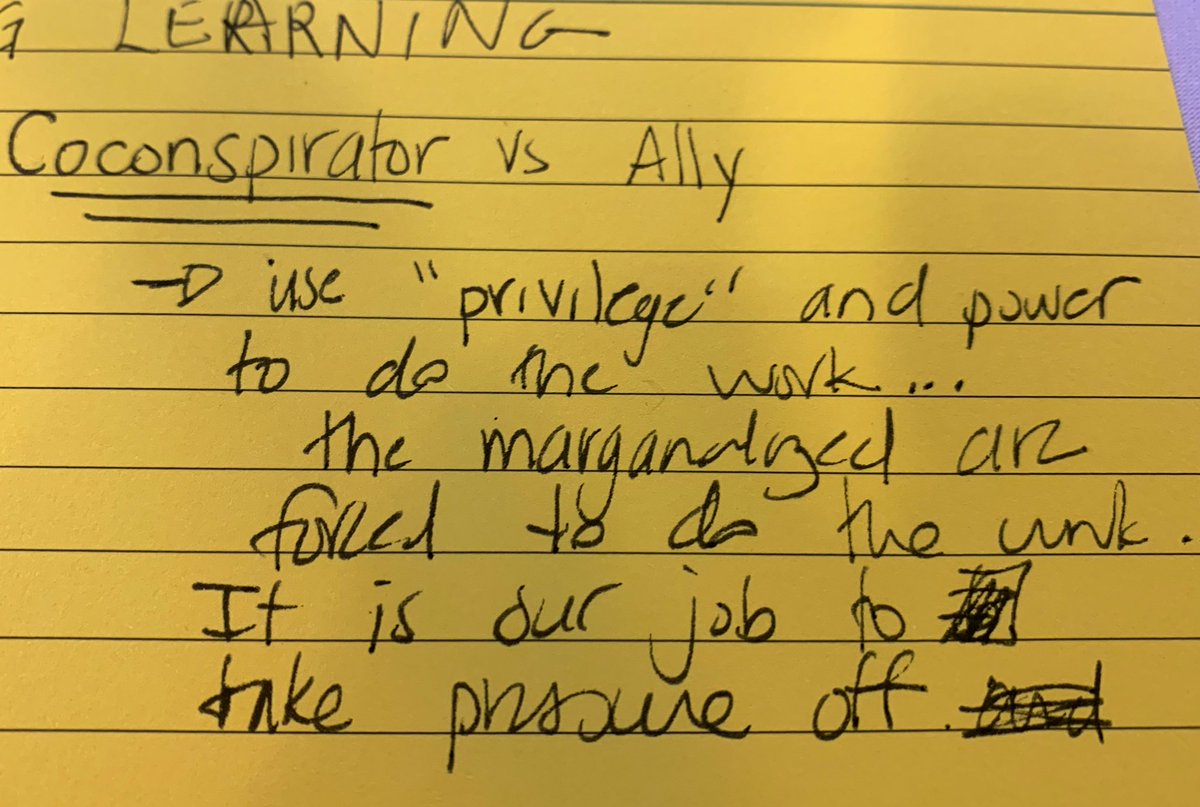 G LEARNING
Coconspirator vs Ally
→ use "privilege" and power
to do the work...
the marganalized are
forced to do the work.
It is our job to
take pressure off.